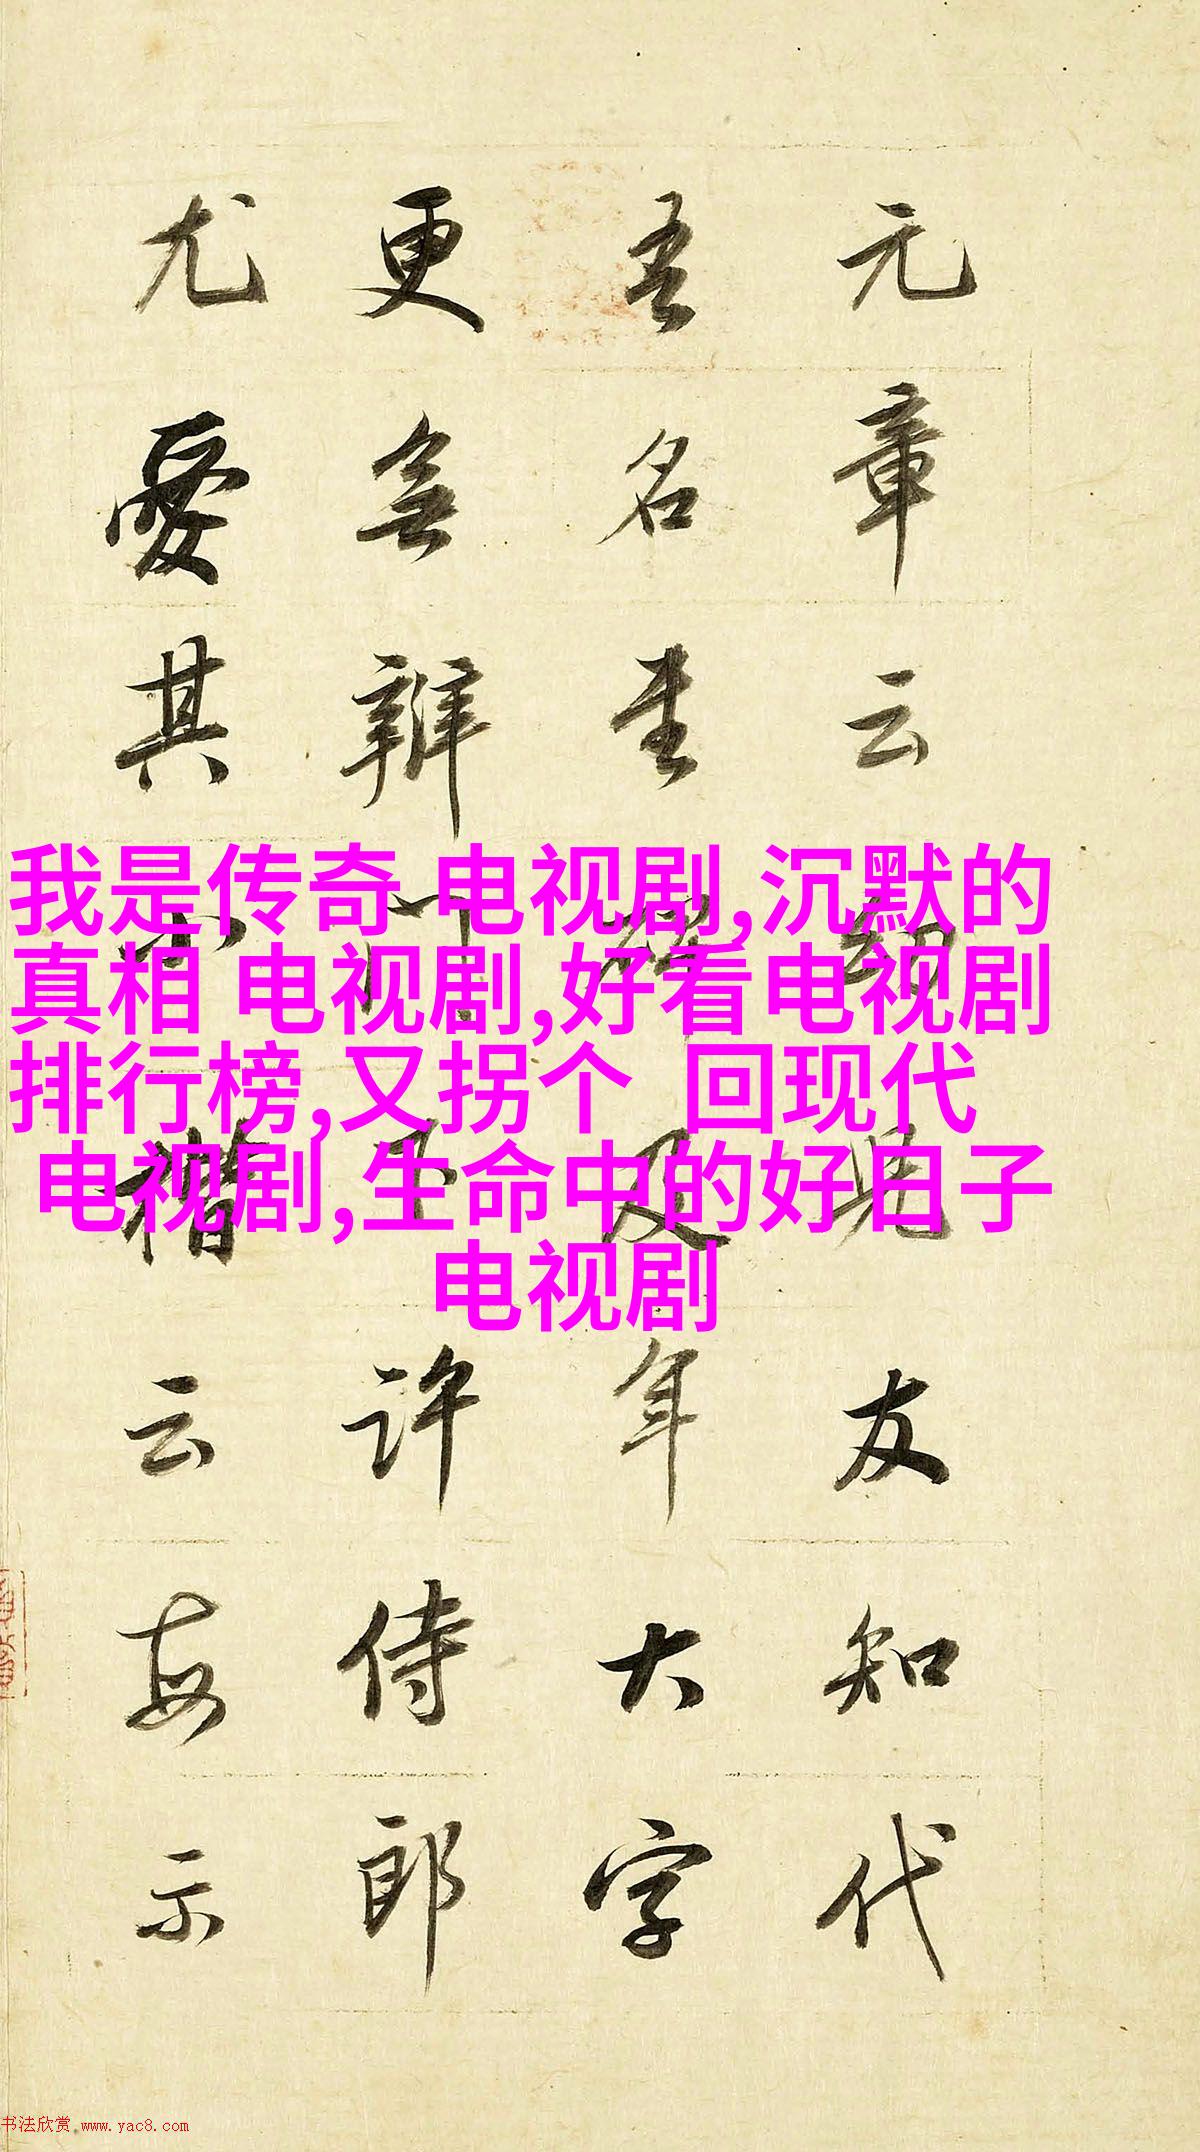 我是传奇 电视剧,沉默的
真相 电视剧,好看电视剧
排行榜,又拐个 回现代
电视剧,生命中的好日子
电视剧
元章云 見友知代
吾名 及年大字
更無辨 許侍郎
尤愛其小楷云每示
书法欣赏 www.yac8.com